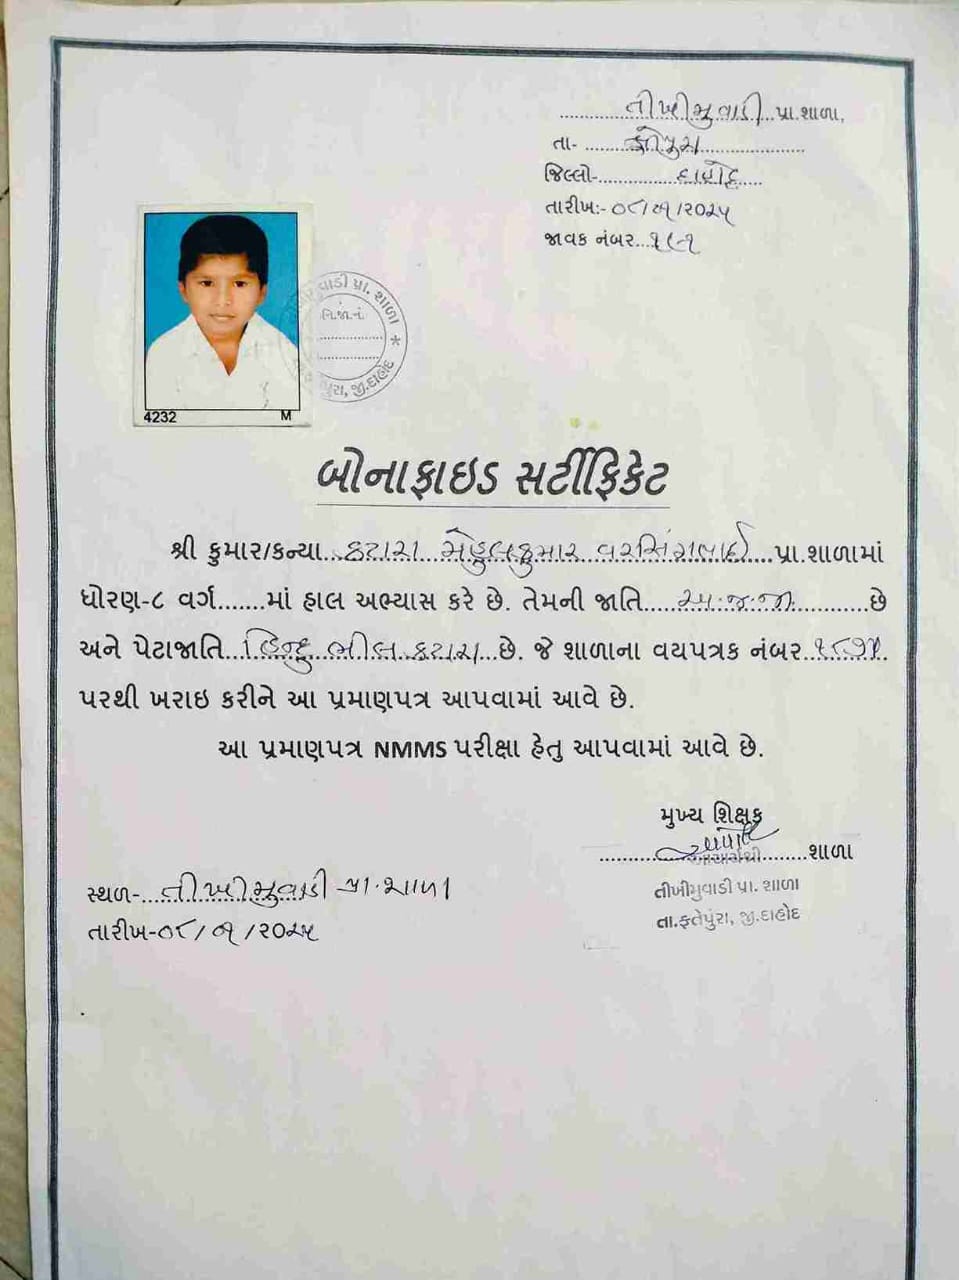 તીખીમુવાડી પ્રા.શાળા,
તા- ફતેપુરા
જિલ્લો- દાહોદ
તારીખ:- ૦૮/૦૧/૨૦૨૫
જાવક નંબર...
મુવાડી પ્રા. શાળા
નિ.જા.નં.
પુરા, જી.દાહોદ
4232 M
બોનાફાઇડ સર્ટીફિકેટ
શ્રી કુમાર/કન્યા...કટારા મેહુલકુમાર વરસિંગભાઈ....પ્રા.શાળામાં
ધોરણ-૮ વર્ગ.......માં હાલ અભ્યાસ કરે છે. તેમની જાતિ.....અ.જ.જા............છે
અને પેટાજાતિ...હિન્દુ ભીલ કટારા...છે. જે શાળાના વયપત્રક નંબર..
પરથી ખરાઇ કરીને આ પ્રમાણપત્ર આપવામાં આવે છે.
આ પ્રમાણપત્ર NMMS પરીક્ષા હેતુ આપવામાં આવે છે.
મુખ્ય શિક્ષક
આચાર્યશ્રી શાળા
તીખીમુવાડી પ્રા. શાળા
તા.ફતેપુરા, જી.દાહોદ
સ્થળ-...તીખીમુવાડી પ્રા.શાળા
તારીખ-૦૮/૦૧/૨૦૨૫